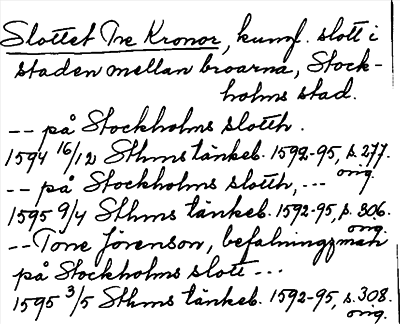 Slottet Tre Kronor, kungl. slott i
staden mellan broarna, Stock-
holms stad.
-- på Stockholms slotth.
1594 16/12 Sthms tänkeb. 1592-95, s. 277.
orig.
-- på Stockholms slotth, ---
1595 9/4 Sthms tänkeb. 1592-95, s. 306.
orig.
-- Tone Jörenson, befalningzman
på Stockholms slott ---
1595 3/5 Sthms tänkeb. 1592-95, s. 308.
orig.